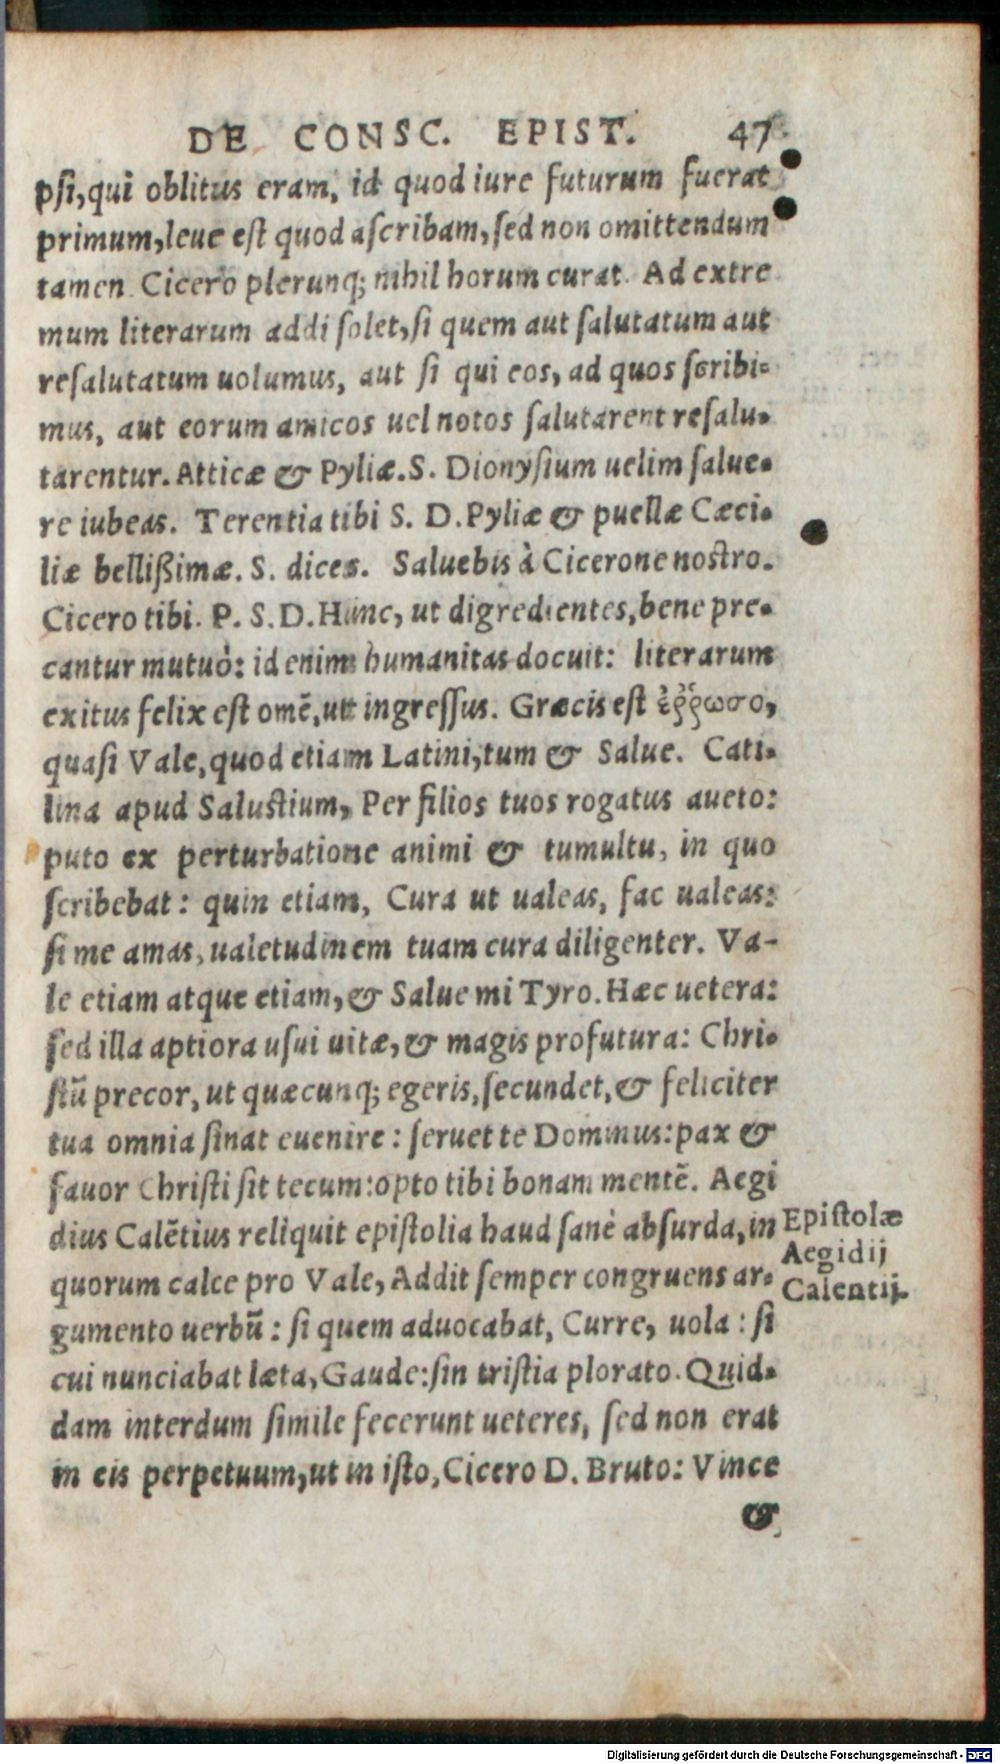 DE CONSC. EPIST. 47
psi, qui oblitus eram, id quod iure futurum fuerat
primum, leue est quod ascribam, sed non omittendum
tamen. Cicero plerunq; nihil horum curat. Ad extre
mum literarum addi solet, si quem aut salutatum aut
resalutatum uolumus, aut si qui eos, ad quos scribi-
mus, aut eorum amicos uel notos salutarent resalu-
tarentur. Atticæ & Pyliæ. S. Dionysium uelim salue-
re iubeas. Terentia tibi S. D. Pyliæ & puellæ Cæci-
liæ bellißimæ. S. dices. Saluebis à Cicerone nostro.
Cicero tibi. P. S. D. Hunc, ut digredientes, bene pre-
cantur mutuò: id enim humanitas docuit: literarum
exitus felix est omẽ, ut ingressus. Græcis est ἔῤῥωσο,
quasi Vale, quod etiam Latini, tum & Salue. Cati-
lina apud Salustium, Per filios tuos rogatus aueto:
puto ex perturbatione animi & tumultu, in quo
scribebat: quin etiam, Cura ut ualeas, fac ualeas:
si me amas, ualetudinem tuam cura diligenter. Va-
le etiam atque etiam, & Salue mi Tyro. Hæc uetera:
sed illa aptiora usui uitæ, & magis profutura: Chri-
stũ precor, ut quæcunq; egeris, secundet, & feliciter
tua omnia sinat euenire: seruet te Dominus: pax &
fauor Christi sit tecum: opto tibi bonam mentẽ. Aegi
dius Calẽtius reliquit epistolia haud sanè absurda, in
quorum calce pro Vale, Addit semper congruens ar-
gumento uerbũ: si quem aduocabat, Curre, uola: si
cui nunciabat læta, Gaude: sin tristia plorato. Quid-
dam interdum simile fecerunt ueteres, sed non erat
in eis perpetuum, ut in isto, Cicero D. Bruto: Vince
&
Epistolæ
Aegidij
Calentij.
Digitalisierung gefördert durch die Deutsche Forschungsgemeinschaft - DFG